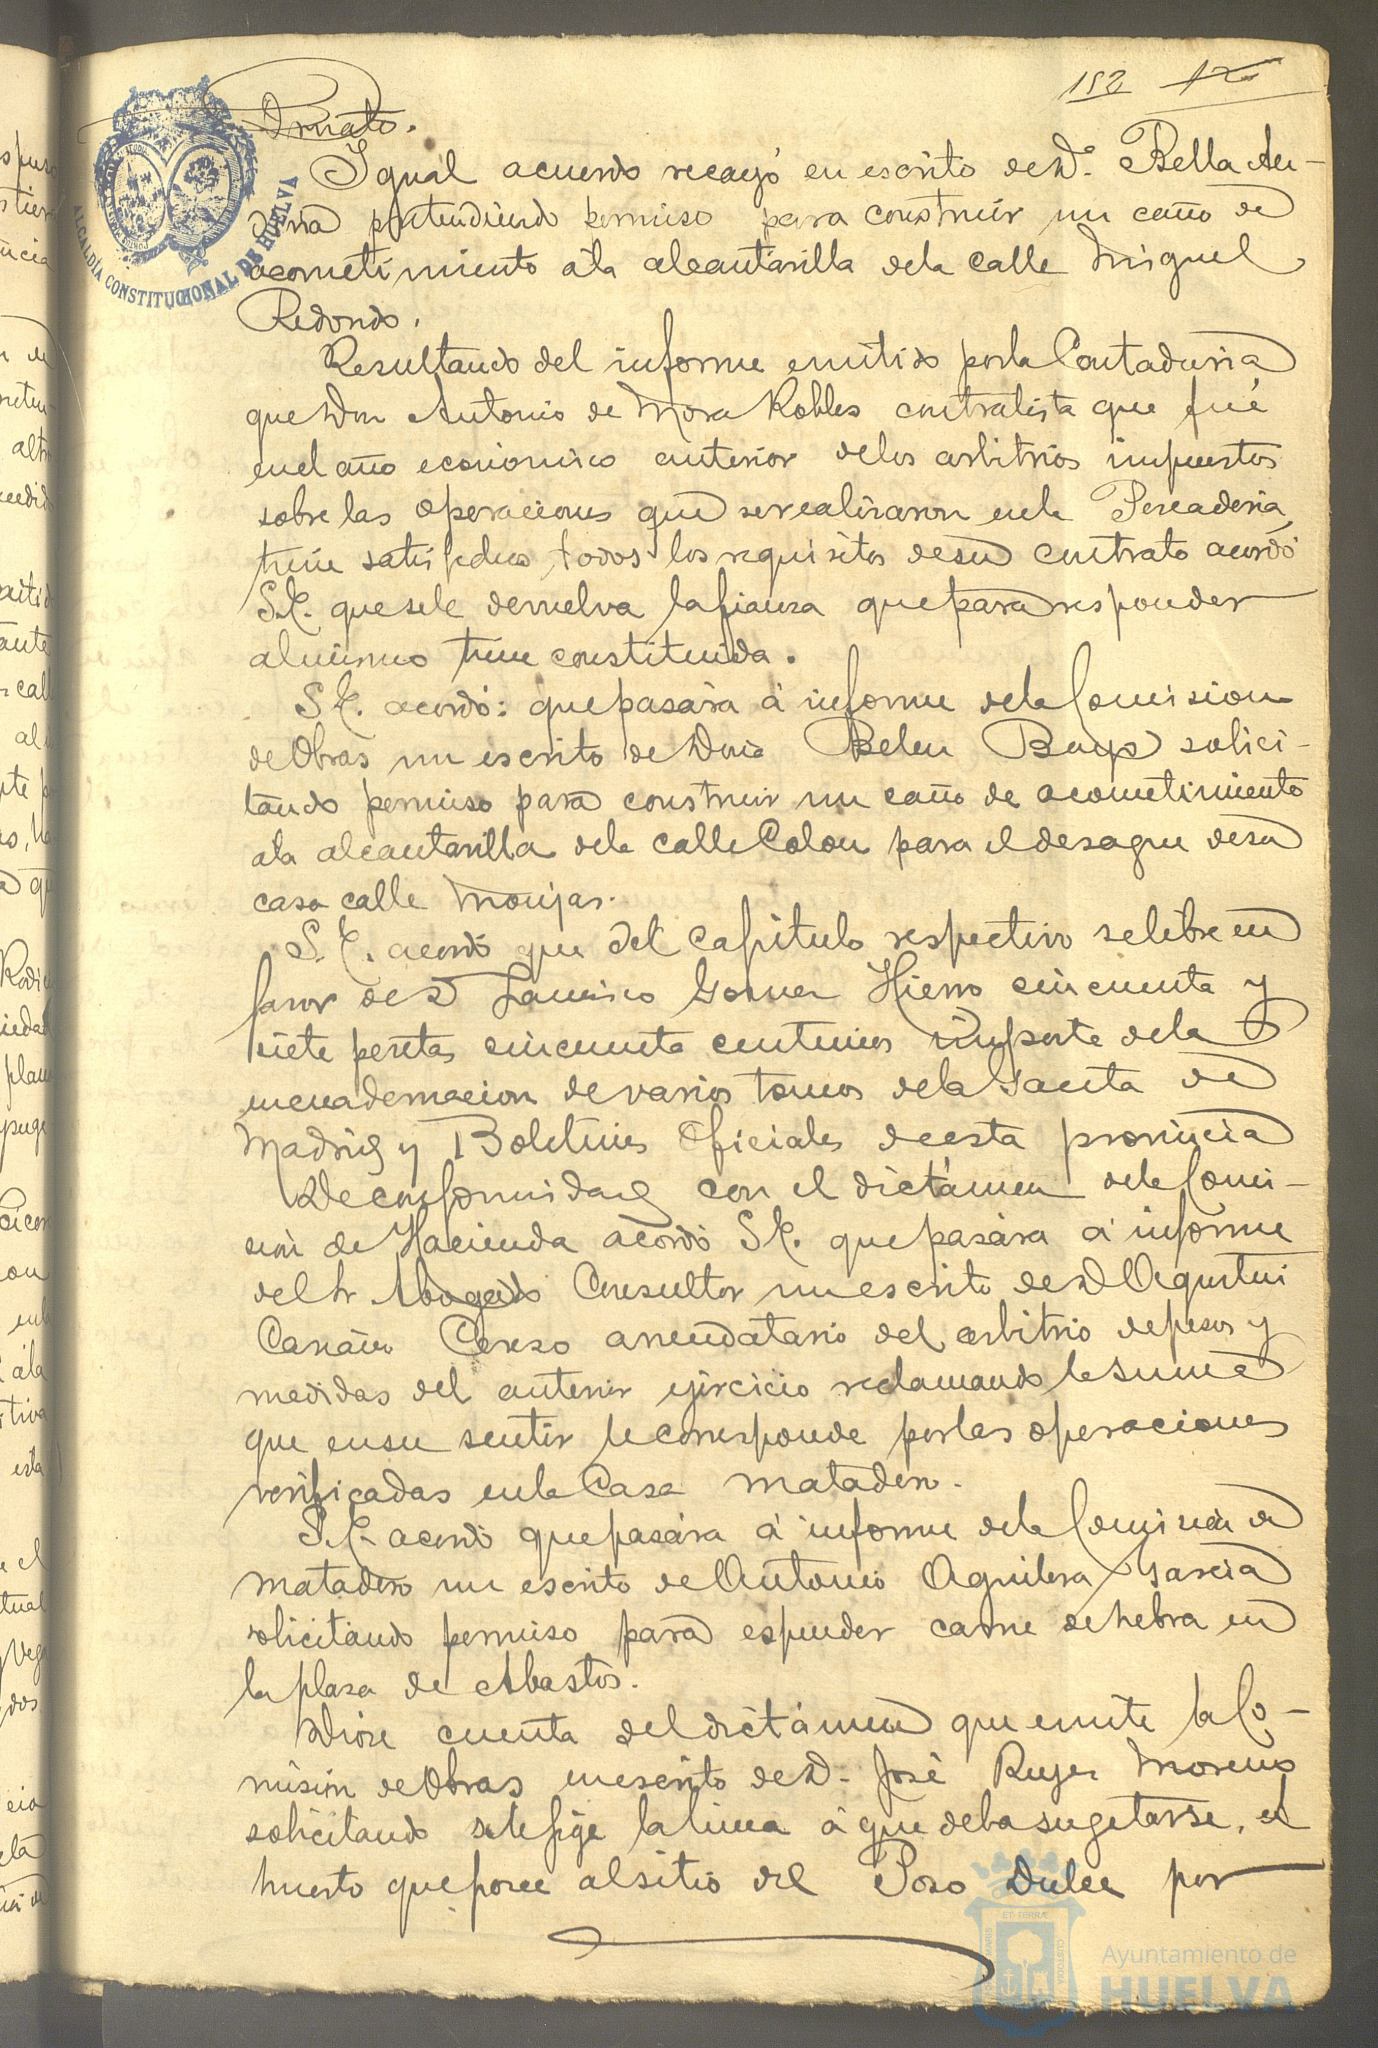 182
Ornato.
Igual acuerdo recayó en escrito de D.ª Bella Au-
pretendiendo permiso para construir un caño de
acometimiento a la alcantarilla de la calle Miguel
Redondo.
Resultando del informe emitido por la Contaduria
que Don Antonio de Mora Robles contratista que fué
en el año economico anterior de los arbitrios impuestos
sobre las operaciones que se realizaron en la Pescaderia,
tiene satisfechos todos los requisitos de su contrato acordó
S.E. que se le devuelva la fianza que para responder
al mismo tiene constituida.
S.E. acordó: que pasára á informe de la Comision
de Obras un escrito de Doña Belen Bayo solici-
tando permiso para construir un caño de acometimiento
a la alcantarilla de la calle Colon para el desague de su
casa calle Monjas.
S.E. acordó que del capitulo respectivo se libre en
favor de D Francisco Gomez Hierro cincuenta y
siete pesetas cincuenta centimos importe de la
encuadernacion de varios tomos de la Gaceta de
Madrid y Boletines Oficiales de esta provincia
De conformidad con el dictámen de la Comi-
sion de Hacienda acordó S.E. que pasára á informe
del Sr Abogado Consultor un escrito de D Agustin
Cerezo arrendatario del arbitrio de pesos y
medidas del anterior ejercicio reclamando la suma
que en su sentir le corresponde por las operaciones
verificadas en la Casa Matadero.
S.E. acordó que pasára á informe de la Comision de
Matadero un escrito de Antonio Aguilera Garcia
solicitando permiso para espender carne de hebra en
la plaza de Abastos.
Dióse cuenta del dictámen que emite la Co-
mision de Obras en escrito de D. José Moreno
solicitando se le fije la linea á que deba sugetarse, el
huerto que posee al sitio del Pozo Dulce por
ALCALDÍA CONSTITUCIONAL DE HUELVA
Ayuntamiento de
HUELVA